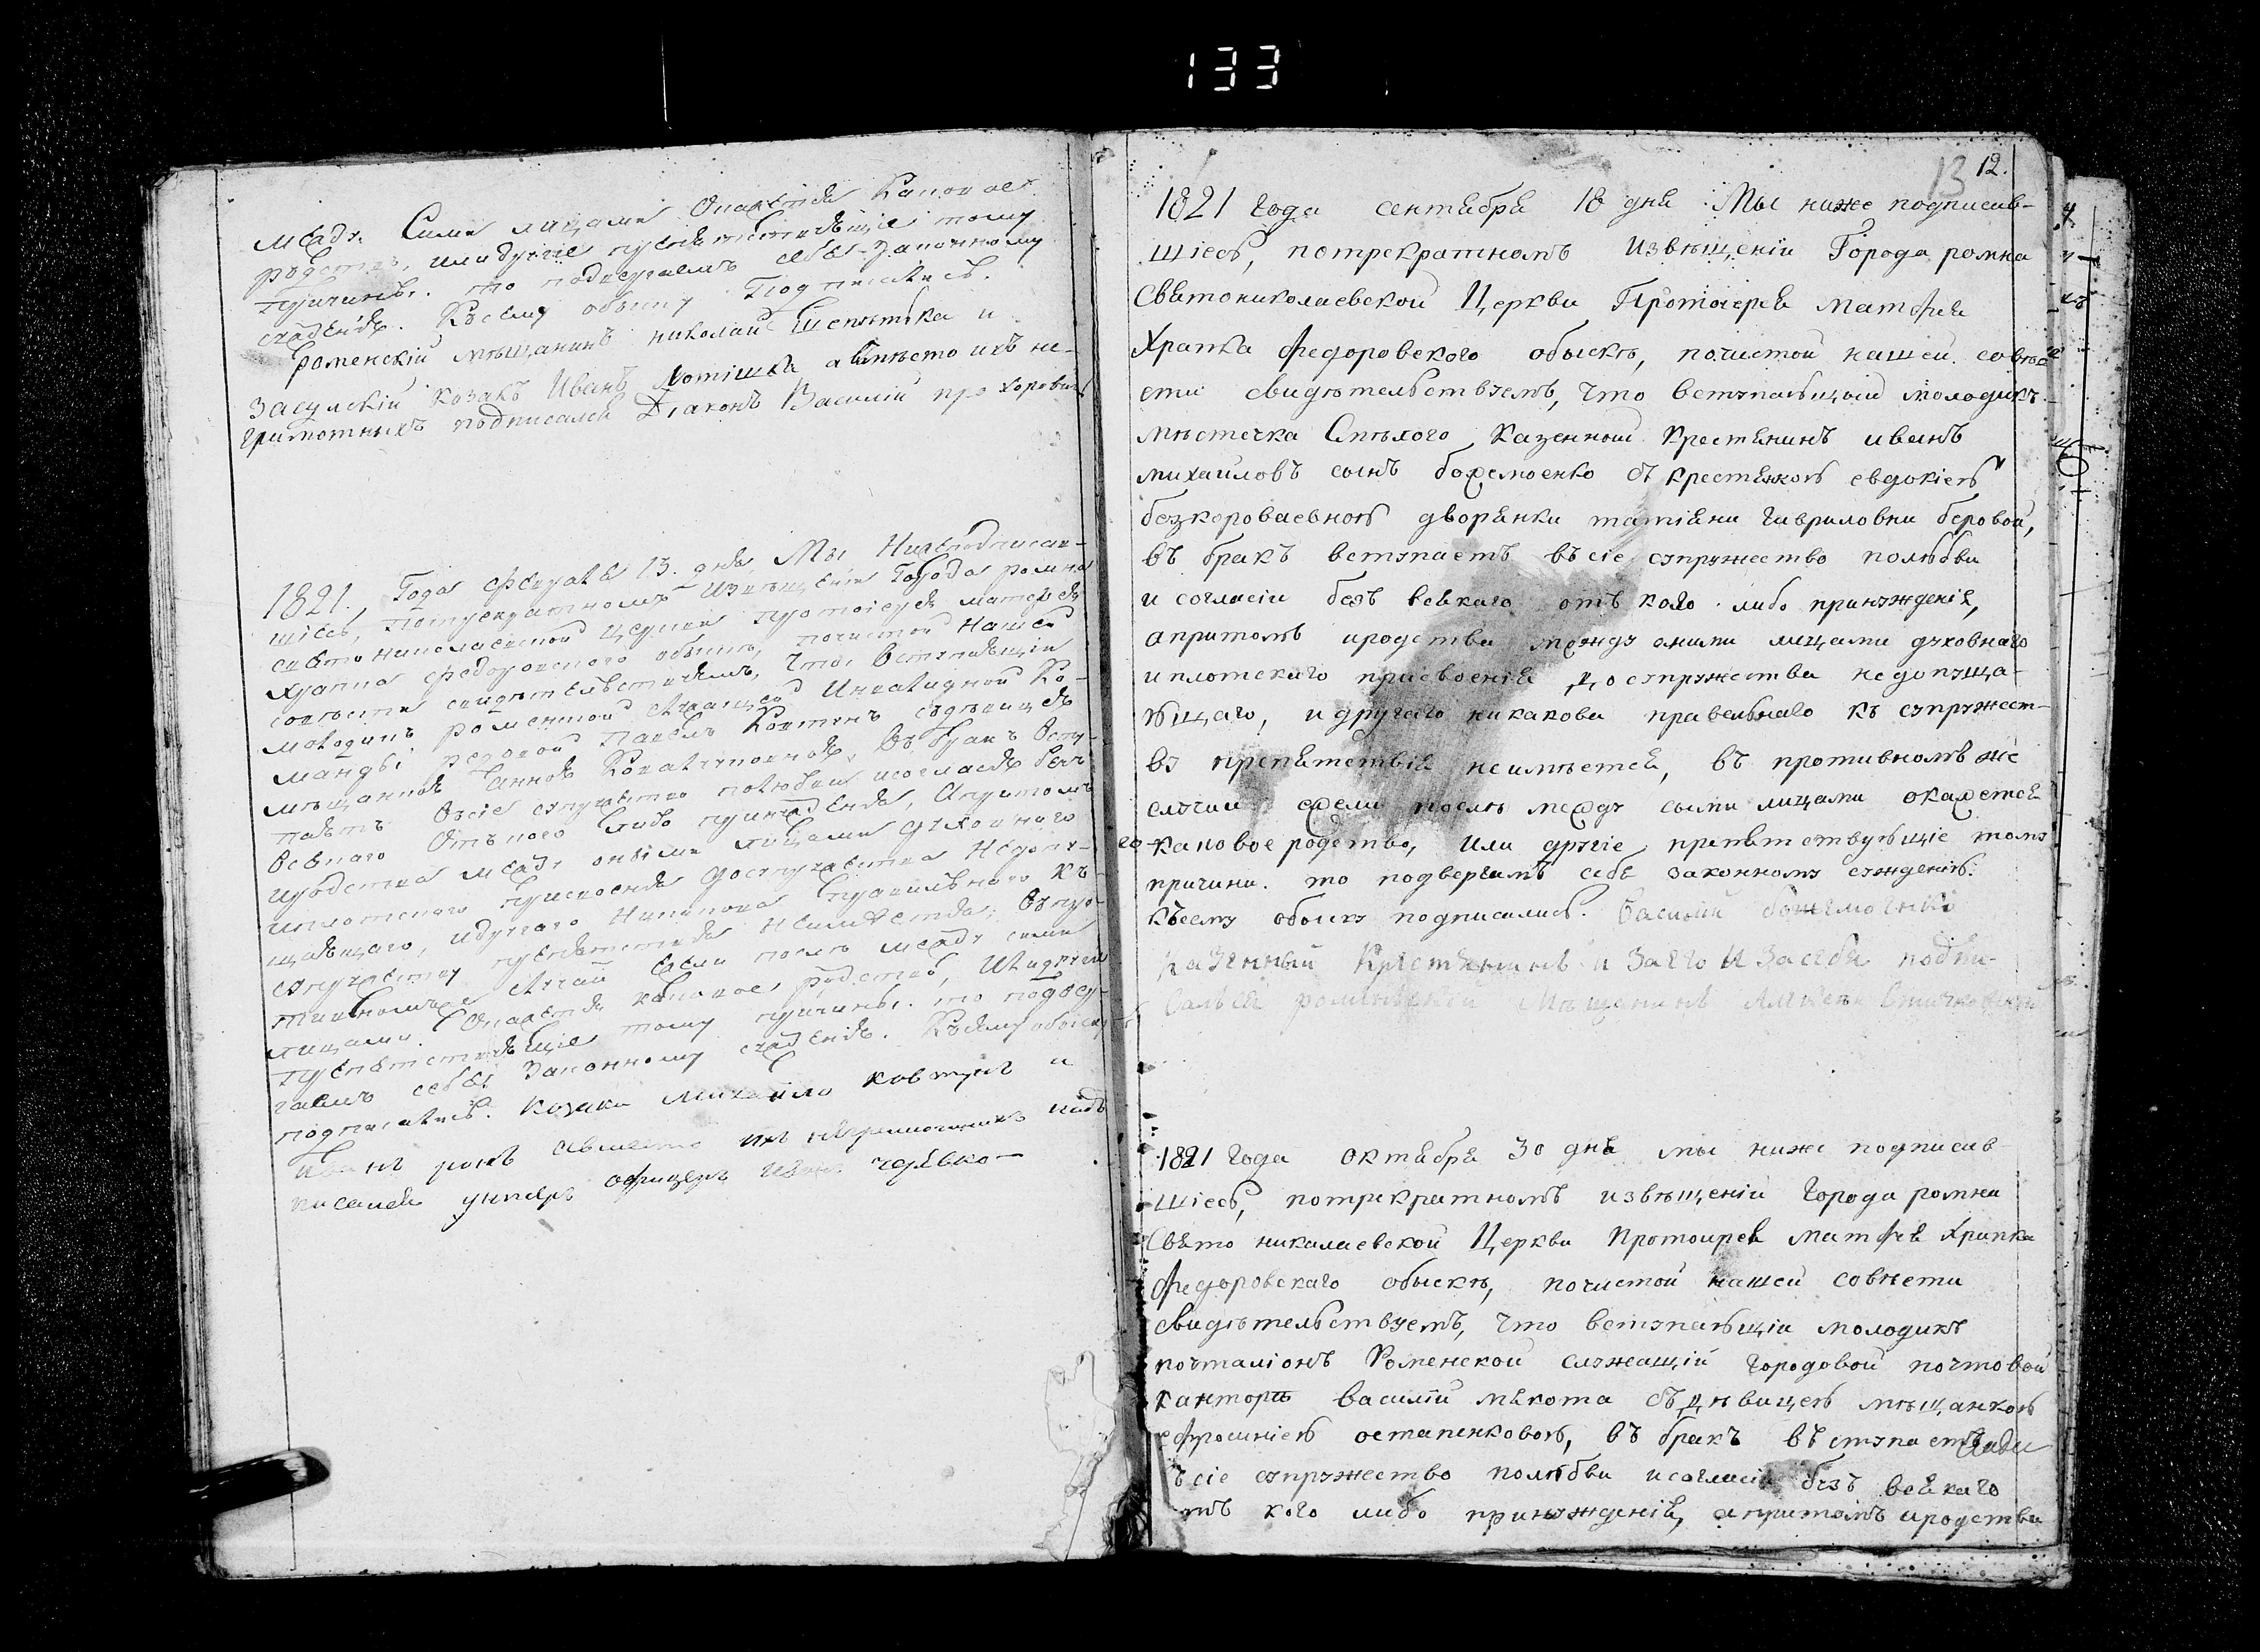 133
межд. Сими лицами Окажется Каковое
родство, или другіе препятствующіе тому
причины. то подвергаемъ себя Законному
сужденію. Къ сему обыску Подписались.
Роменскій мѣщанинъ николай Шепетька и
засулскій козакъ Иванъ а вмѣсто ихъ не-
грамотныхъ подписался Діаконъ Василій прохоровичъ
1821, Года февраля 13. дня Мы Нижеподписав-
шіесь, Потрекратномъ Извѣщеніи Города ромна
свято николаевской церкви протоіерея матфея
храпка федоровского обыскѣ, почистой Нашей
совѣсти свидѣтельствуемъ, Что Вступающій
молодикъ роменской Инвалидной Ко-
манды рядовой Павелъ Ковтунъ съ дѣвицею
мѣщанкою Анною Въ бракъ Всту-
паетъ Въ сіе супружество полюбви исогласію безъ
Всякаго Отъ кого Либо принужденія, Апритомъ
иродства межд. оными Лицами духовнаго
иплотскаго присвоенія до супружества Недопу-
щающаго, идругаго Никакова правильнаго къ
супружеству препятствія Неимѣется, Въ про-
тивномъже случаи Ежели послѣ межд. сими
лицами Окажется каковое родство, Или другіе
Препятствующіе тому причины. то подвер-
гаемъ себя Законному сужденію. Къ сему обыску
подписались. козаки Михайло ковтунъ и
авместо ихъ неграмотныхъ подъ
писался унтеръ офицеръ Иванъ
13 12.
1821 года сентября 18 дня Мы ниже подписав-
шіесь, потрекратномъ Извѣщеніи Города ромна
святониколаевской Церкви Протоіерея матфея
Храпка Федоровского обыскѣ, почистой нашей совѣс
сти свидѣтельствуемъ, что вступающій молодикъ
мѣстечка Смѣлого казенный крестянинъ иванъ
михаиловъ сынъ божемоенко съ крестянкою евдокіею
безкороваевною дворянки татіяни гавриловни беровой,
въ бракъ вступаетъ въ сіе супружество полюбви
и согласіи безъ всякаго отъ кого либо принужденія,
апритомъ иродства между оними лицами духовнаго
иплотскаго присвоенія до супружества недопуща-
ющаго, идругаго никакова правельнаго къ супружест-
ву препятствія неимѣется, въ противномъ же
случаи ежели послѣ межд. сыми лицами окажется
каковое родство, или другіе препятствующіе тому
причини. то подвергаемъ себя законному сужденію.
къ сему обыску подписались. Василий божемоенко
казенный Крестянинъ и за его и за себя подпи-
сался роменский мещанинъ
1821 года октября 30 дня мы ниже подписав
шіесь, потрикратномъ извѣщеніи города ромна
свято николаевской Церкви Протоирея матфея Храпка
федоровскаго обыскѣ, почистой нашей совѣсти
свидѣтельствуемъ, что вступающіи молодикъ
почталіонъ Роменской служащій городовой почтовой
канторѣ василій мякота съ дѣвицею мѣщанкою
ефросиніею остапенковою, въ бракъ въступаетъ
ъ сіе супружество полюбви исогласіи безъ всякаго
тъ кого либо принужденія, апритомъ иродства